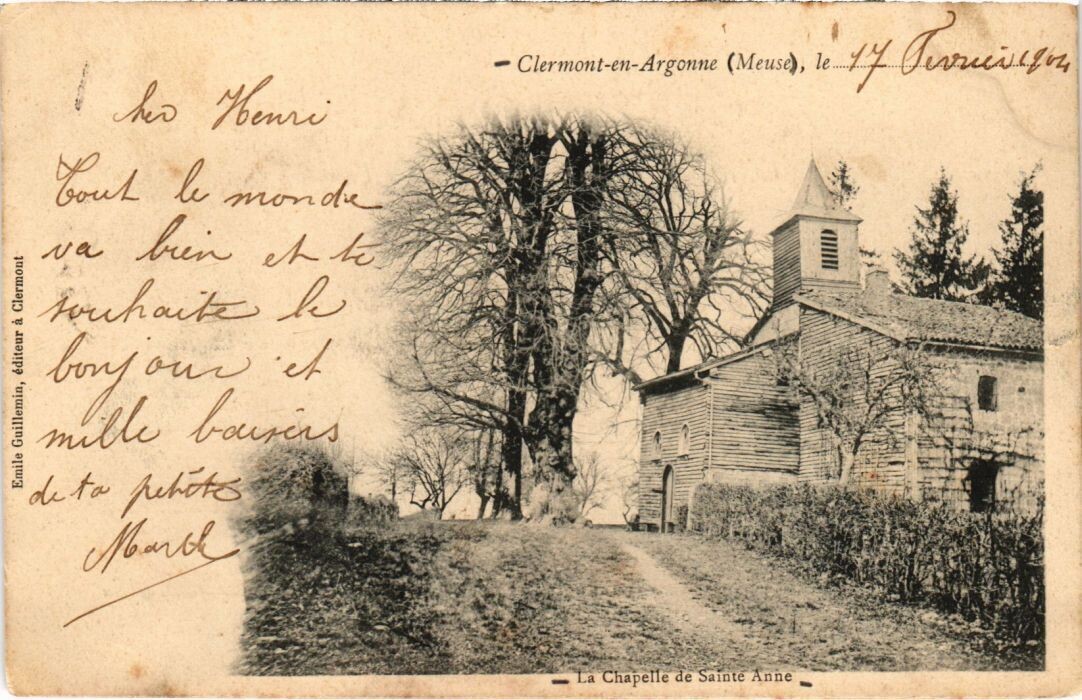 Clermont-en-Argonne (Meuse), le 17 Fevrier 1904
cher Henri
Tout le monde
va bien et te
souhaite le
bonjour et
mille baisers
de ta petite
Emile Guillemin, éditeur à Clermont
La Chapelle de Sainte Anne